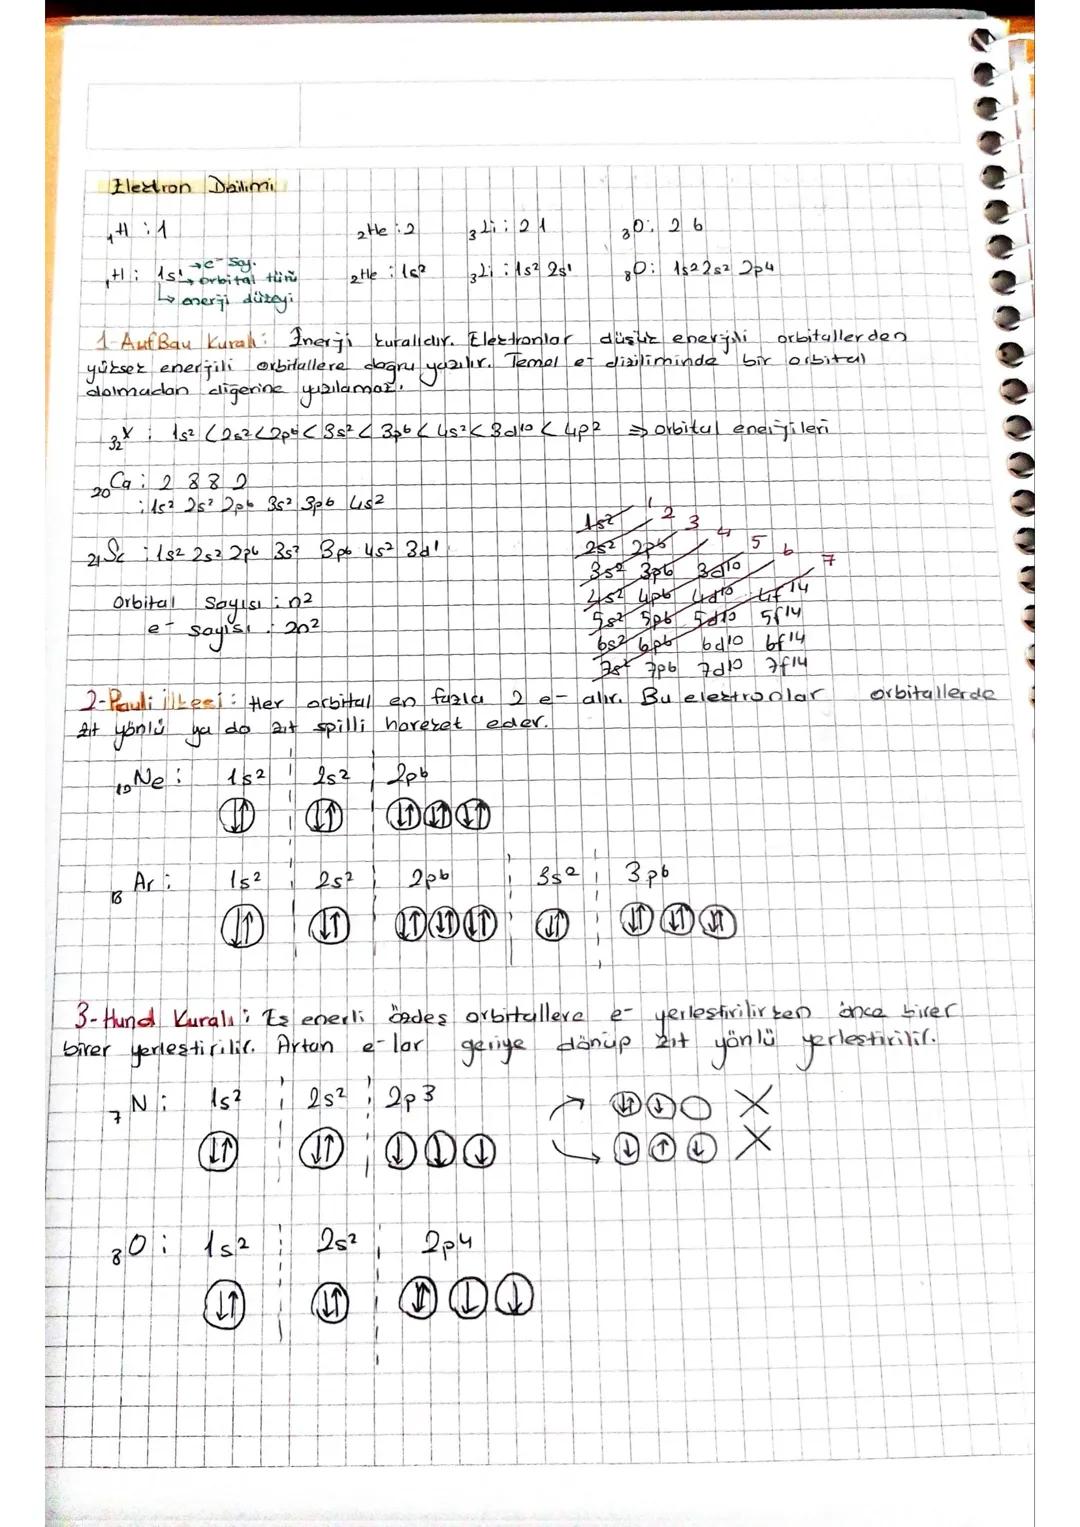 Elektron Dizilimi
₁H : 1 ₂He : 2 ₃Li : 2 1 ₈O : 2 6
₁H : 1s¹ → e⁻ Say. ₂He : 1s² ₃Li : 1s² 2s¹ ₈O : 1s² 2s² 2p4
↳ orbital türü
↳ enerji düzeyi
1-AufBau Kuralı : Enerji kuralıdır. Elektronlar düşük enerjili orbitallerden
yüksek enerjili orbitallere doğru yazılır. Temel e⁻ diziliminde bir orbital
dolmadan diğerine yazılamaz.
₃₂X : 1s² < 2s² < 2p6 < 3s² < 3p6 < 4s² < 3d10 < 4p2 ⇒ orbital enerjileri
₂₀Ca : 2 8 8 2
: 1s² 2s² 2p6 3s² 3p6 4s²
₂₁Sc : 1s² 2s² 2p6 3s² 3p6 4s² 3d¹
Orbital Sayısı : n²
e⁻ sayısı : 2n²
1 2 3 4 5 6 7
1s²
2s² 2p6
3s² 3p6 3d10
4s² 4p6 4d10 4f14
5s² 5p6 5d10 5f14
6s² 6p6 6d10 6f14
7s² 7p6 7d10 7f14
2-Pauli İlkesi : Her orbital en fazla 2 e- alır. Bu elektronlar orbitallerde
zıt yönlü ya da zıt spilli hareket eder.
₁₀Ne : 1s² 2s² 2p6
₁₈Ar : 1s² 2s² 2p6 3s² 3p6
3-Hund Kuralı : Eş enerli özdeş orbitallere e- yerleştirilirken önce birer
birer yerleştirilir. Artan e-lar geriye dönüp zıt yönlü yerleştirilir.
₇N : 1s² 2s² 2p3
₈O : 1s² 2s² 2p4